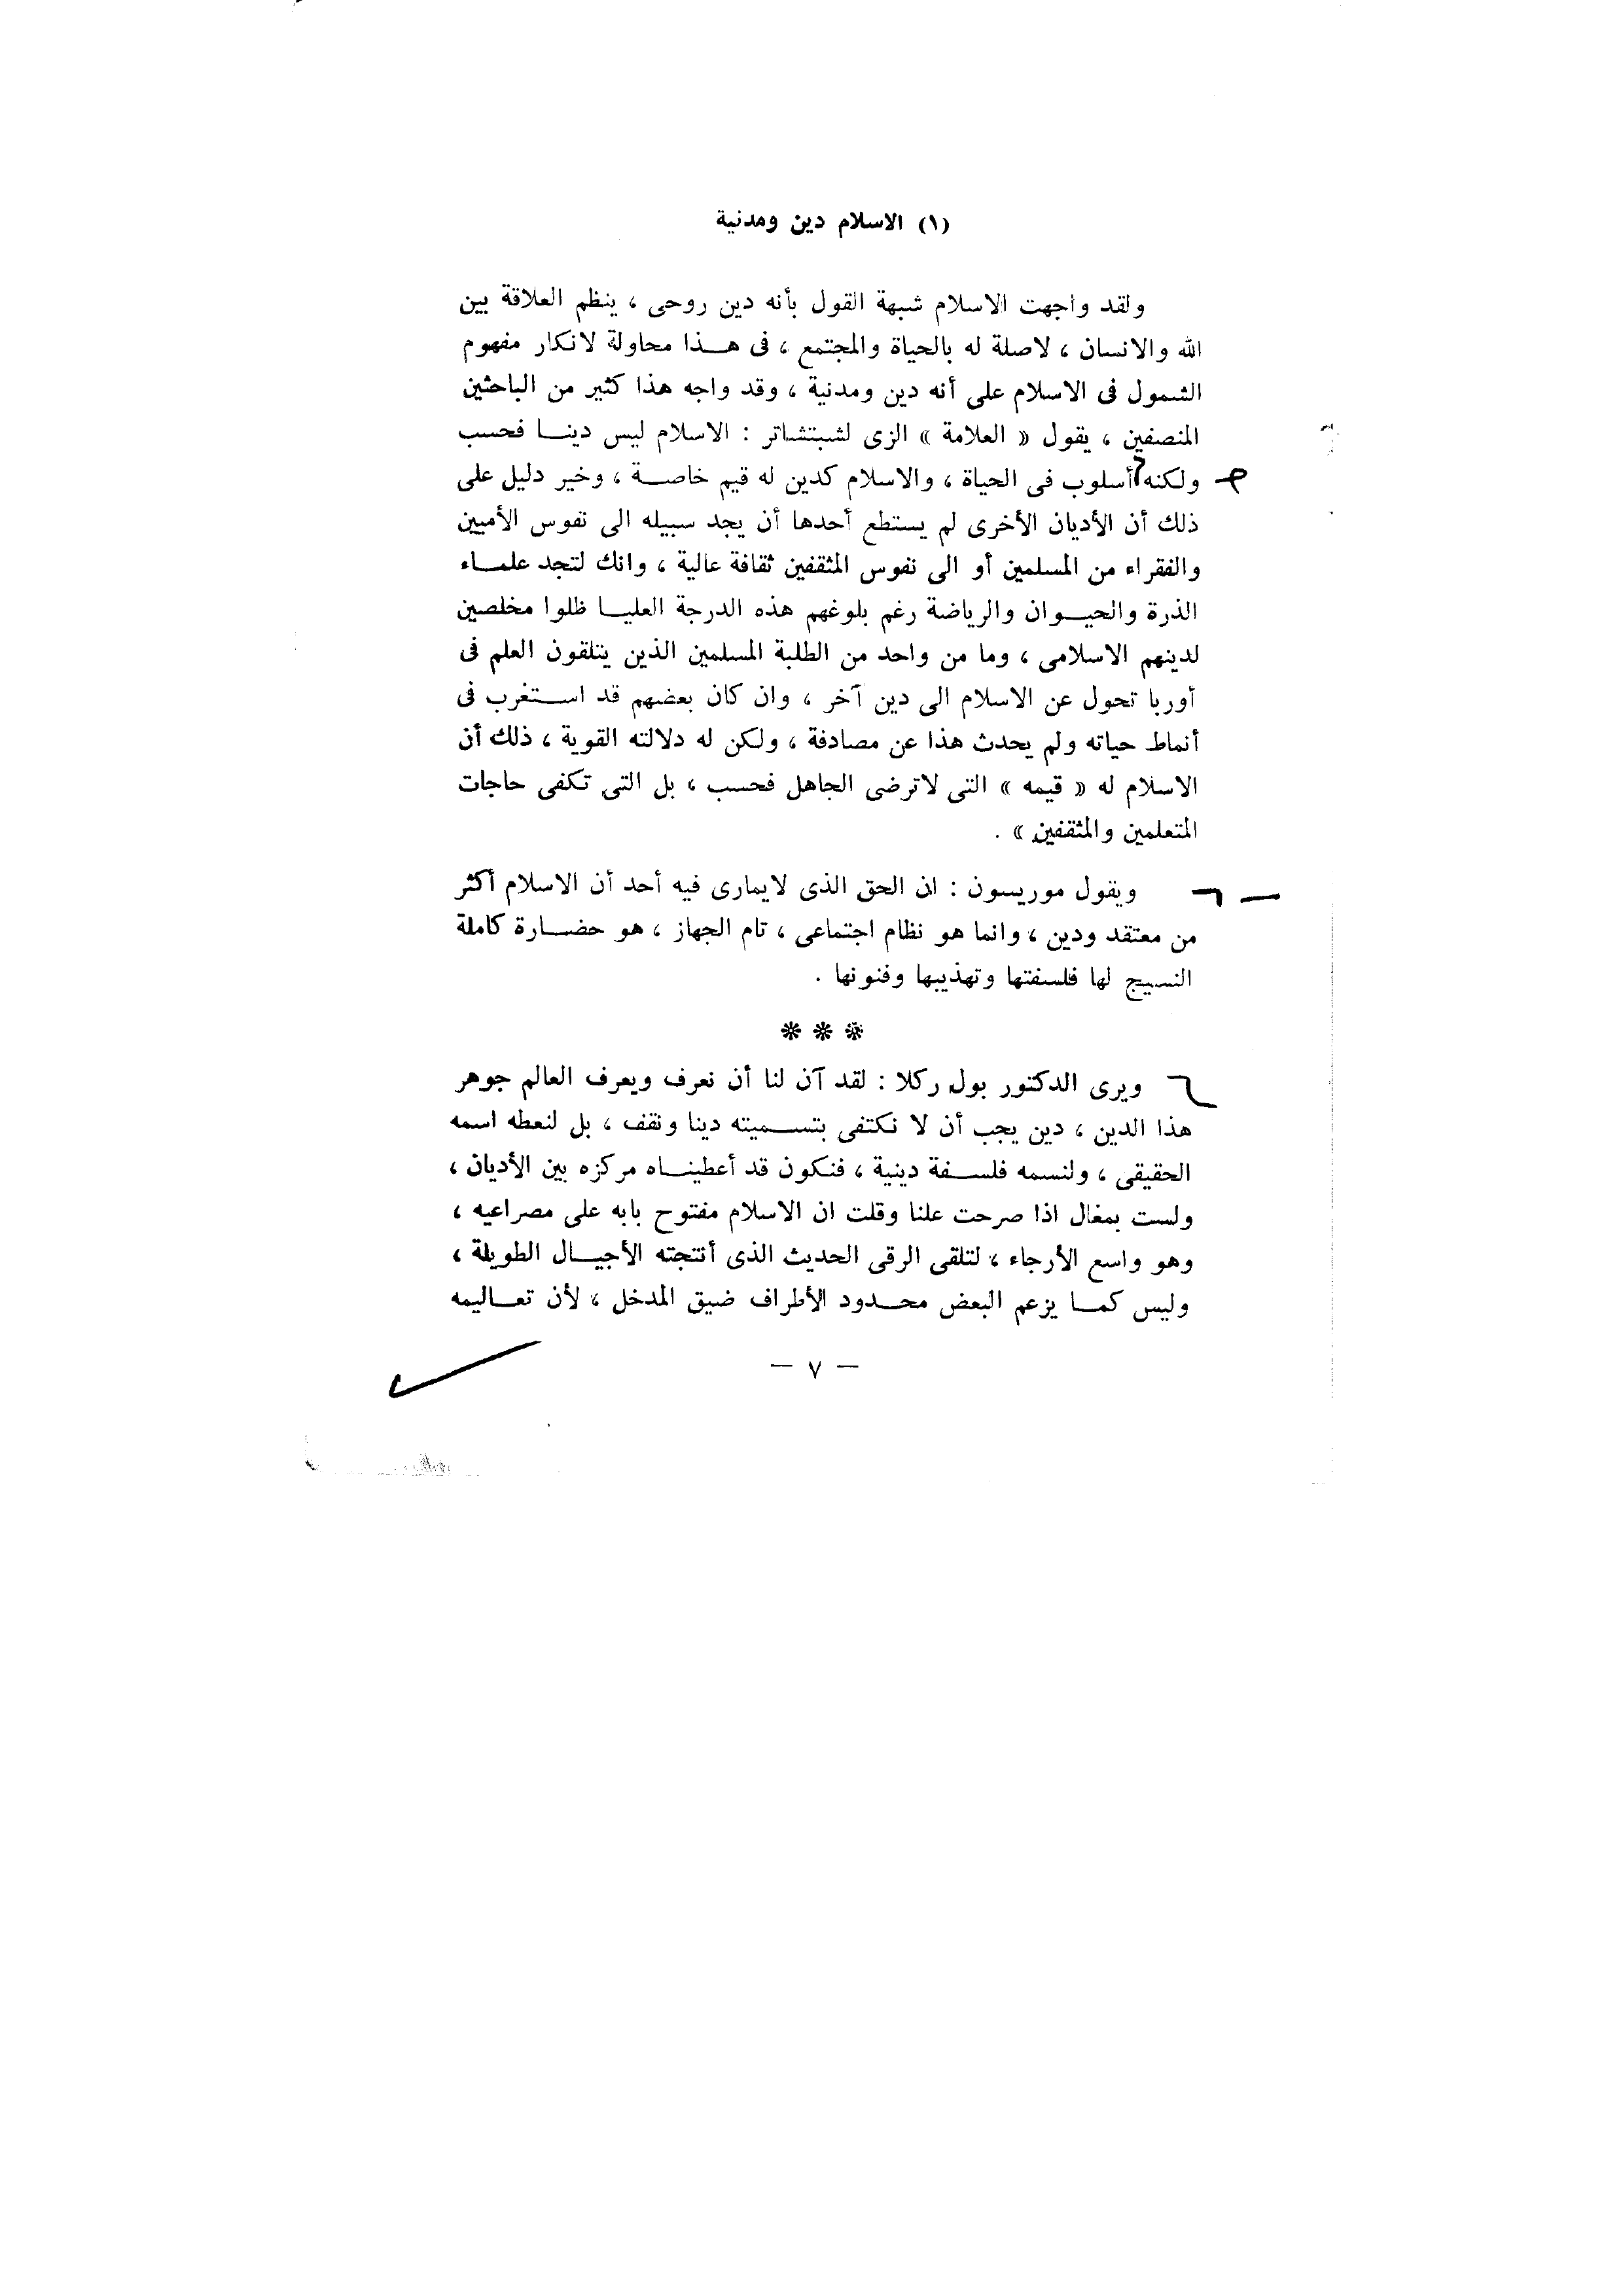 (١) الاسلام دين ومدنية
ولقد واجهت الاسلام شبهة القول بأنه دين روحى ، ينظم العلاقة بين
الله والانسان ، لاصلة له بالحياة والمجتمع ، فى هـــذا محاولة لانكار مفهوم
الشمول فى الاسلام على أنه دين ومدنية ، وقد واجه هذا كثير من الباحثين
المنصفين ، يقول « العلامة » الزى لشبتشاتر : الاسلام ليس دينـــا فحسب
ولكنه أسلوب فى الحياة ، والاسلام كدين له قيم خاصـــة ، وخير دليل على
ذلك أن الأديان الأخرى لم يستطع أحدها أن يجد سبيله الى نفوس الأميين
والفقراء من المسلمين أو الى نفوس المثقفين ثقافة عالية ، وانك لتجد علمـــاء
الذرة والحيـــوان والرياضة رغم بلوغهم هذه الدرجة العليـــا ظلوا مخلصين
لدينهم الاسلامى ، وما من واحد من الطلبة المسلمين الذين يتلقون العلم فى
أوربا تحول عن الاسلام الى دين آخر ، وان كان بعضهم قد استـــغرب فى
أنماط حياته ولم يحدث هذا عن مصادفة ، ولكن له دلالته القوية ، ذلك أن
الاسلام له « قيمه » التى لاترضى الجاهل فحسب ، بل التى تكفى حاجات
المتعلمين والمثقفين » .
ويقول موريسون : ان الحق الذى لايمارى فيه أحد أن الاسلام أكثر
من معتقد ودين ، وانما هو نظام اجتماعى ، تام الجهاز ، هو حضـــارة كاملة
النسيج لها فلسفتها وتهذيبها وفنونها .
❋ ❋ ❋
ويرى الدكتور بول ركلا : لقد آن لنا أن نعرف ويعرف العالم جوهر
هذا الدين ، دين يجب أن لا نكتفى بتســـميته دينا ونقف ، بل لنعطه اسمه
الحقيقى ، ولنسمه فلســـفة دينية ، فنكون قد أعطينـــاه مركزه بين الأديان ،
ولست بمغال اذا صرحت علنا وقلت ان الاسلام مفتوح بابه على مصراعيه ،
وهو واسع الأرجاء ، لتلقى الرقى الحديث الذى أنتجته الأجيـــال الطويلة ،
وليس كمـــا يزعم البعض محـــدود الأطراف ضيق المدخل ، لأن تعـــاليمه
— ٧ —